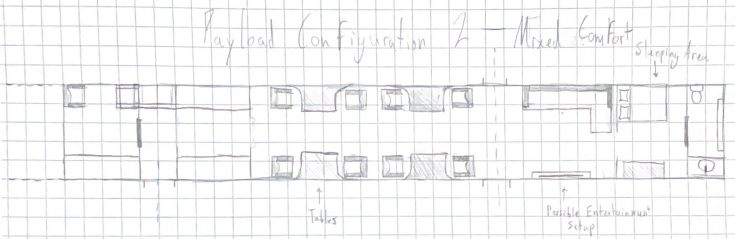 Payload Configuration 2 - Mixed Comfort
Sleeping Area
Tables
Possible Entertainment
Setup